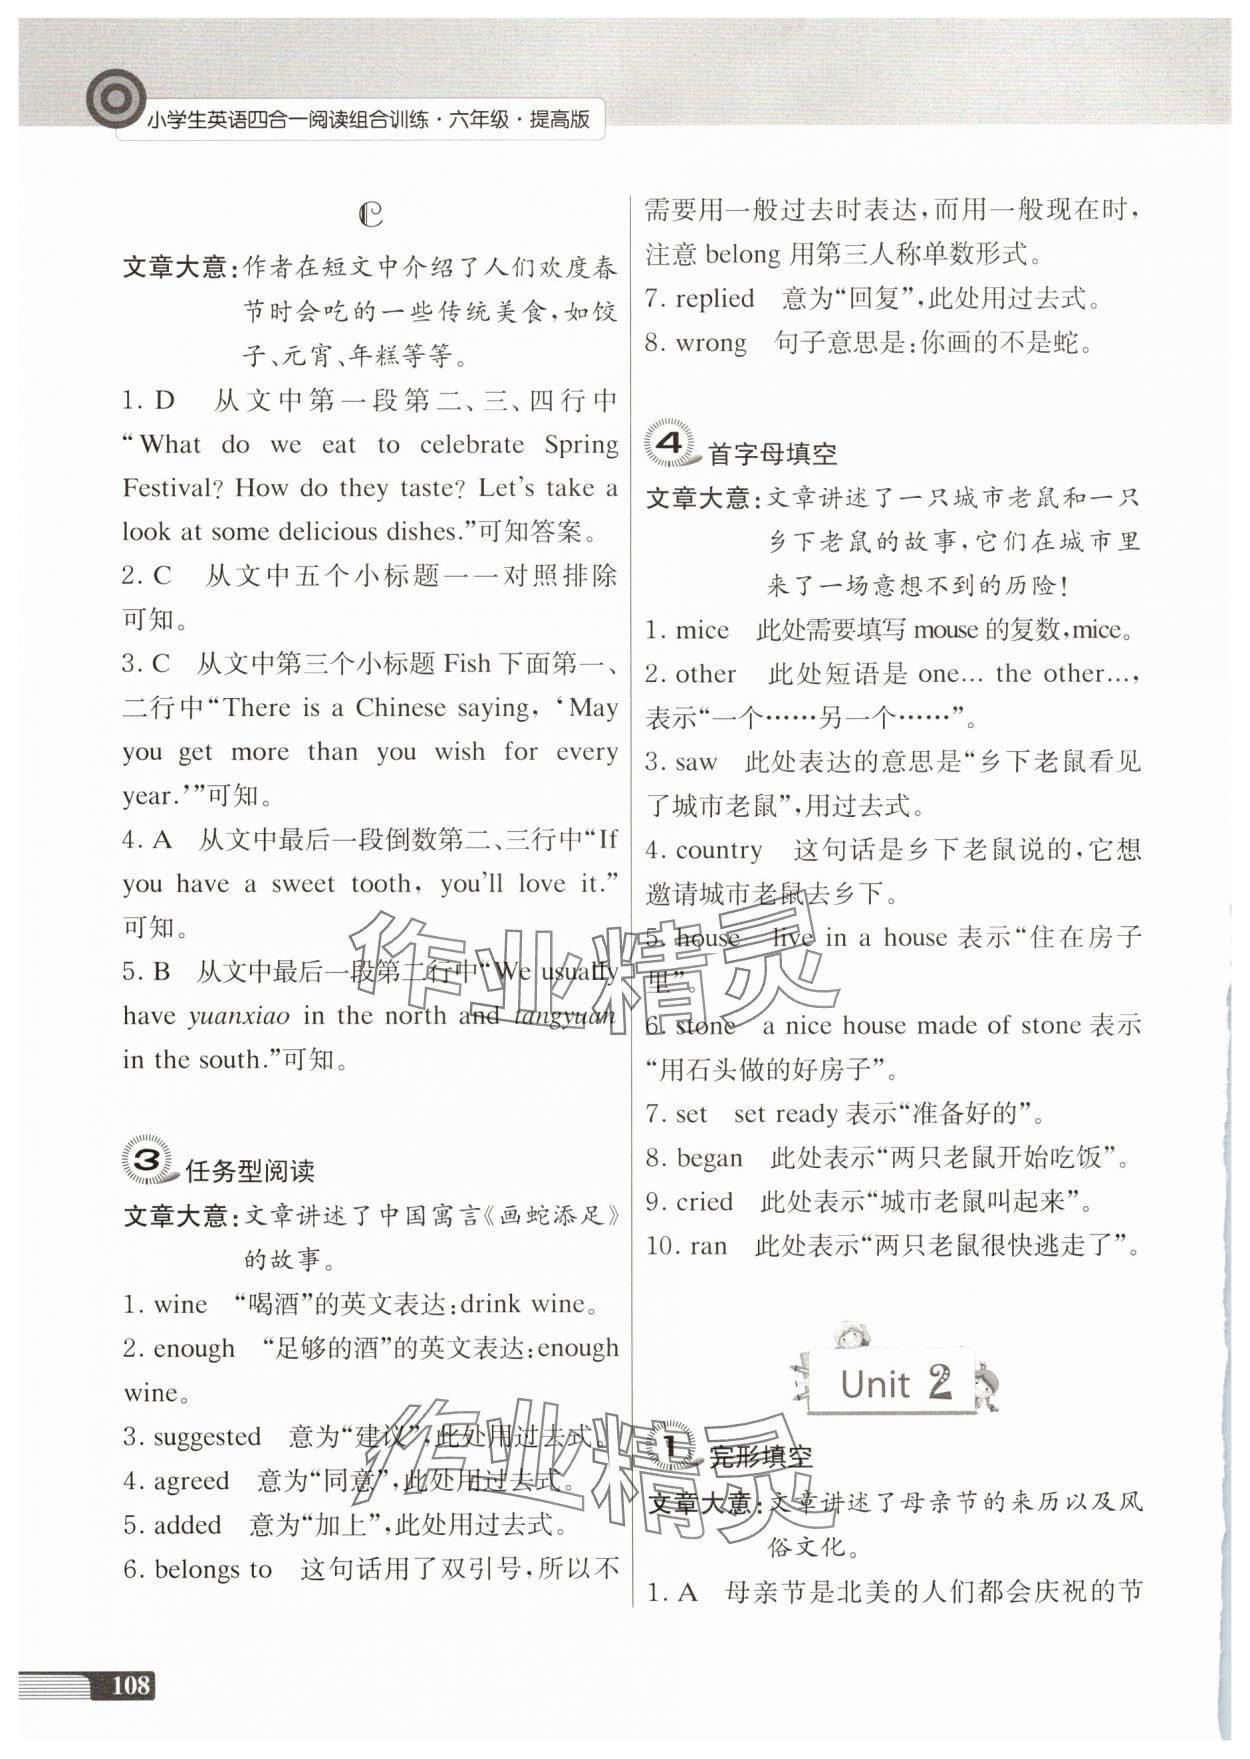 小学生英语四合一阅读组合训练·六年级·提高版
C
文章大意:作者在短文中介绍了人们欢度春
节时会吃的一些传统美食,如饺
子、元宵、年糕等等。
1. D　从文中第一段第二、三、四行中
“What do we eat to celebrate Spring
Festival? How do they taste? Let's take a
look at some delicious dishes.”可知答案。
2. C　从文中五个小标题一一对照排除
可知。
3. C　从文中第三个小标题 Fish 下面第一、
二行中“There is a Chinese saying, ‘May
you get more than you wish for every
year.’”可知。
4. A　从文中最后一段倒数第二、三行中“If
you have a sweet tooth, you'll love it.”
可知。
5. B　从文中最后一段第二行中“We usually
have yuanxiao in the north and tangyuan
in the south.”可知。
3 任务型阅读
文章大意:文章讲述了中国寓言《画蛇添足》
的故事。
1. wine　“喝酒”的英文表达:drink wine。
2. enough　“足够的酒”的英文表达:enough
wine。
3. suggested　意为“建议”,此处用过去式。
4. agreed　意为“同意”,此处用过去式。
5. added　意为“加上”,此处用过去式。
6. belongs to　这句话用了双引号,所以不
需要用一般过去时表达,而用一般现在时,
注意 belong 用第三人称单数形式。
7. replied　意为“回复”,此处用过去式。
8. wrong　句子意思是:你画的不是蛇。
4 首字母填空
文章大意:文章讲述了一只城市老鼠和一只
乡下老鼠的故事,它们在城市里
来了一场意想不到的历险!
1. mice　此处需要填写 mouse 的复数,mice。
2. other　此处短语是 one... the other...,
表示“一个……另一个……”。
3. saw　此处表达的意思是“乡下老鼠看见
了城市老鼠”,用过去式。
4. country　这句话是乡下老鼠说的,它想
邀请城市老鼠去乡下。
5. house　live in a house 表示“住在房子
里”。
6. stone　a nice house made of stone 表示
“用石头做的好房子”。
7. set　set ready 表示“准备好的”。
8. began　此处表示“两只老鼠开始吃饭”。
9. cried　此处表示“城市老鼠叫起来”。
10. ran　此处表示“两只老鼠很快逃走了”。
Unit 2
1 完形填空
文章大意:文章讲述了母亲节的来历以及风
俗文化。
1. A　母亲节是北美的人们都会庆祝的节
108
作业精灵
作业精灵